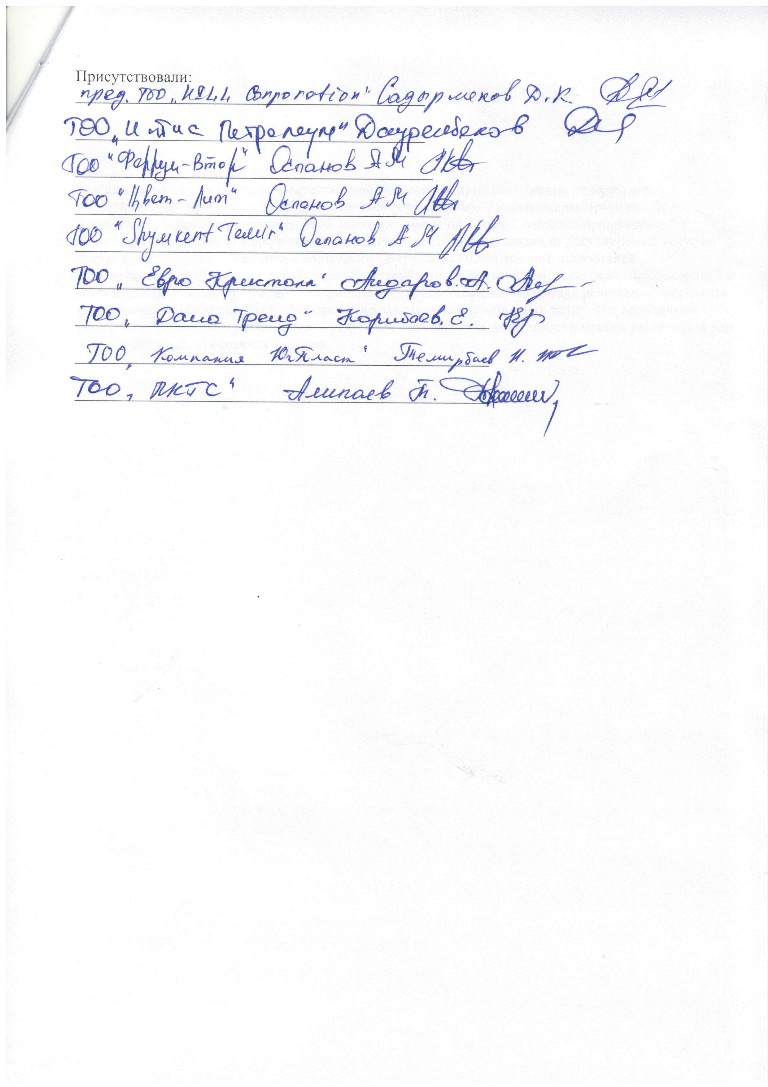 Присутствовали:
пред. ТОО „ Corporation" Садырмеков Д.К.
ТОО „Иртис Петролеум" Дауренбеков
ТОО "Феррум-Втор" Оспанов А М
ТОО "Цвет-Лит" Оспанов А М
ТОО "Shymkent Темiр" Оспанов А М
ТОО „ Евро Кристалл" Айдаров. А.
ТОО „ Дана Тренд" Карибаев. Е.
ТОО „ Компания ЮгПласт" Темирбаев И.
ТОО „ ПКТС" Алипаев Т.